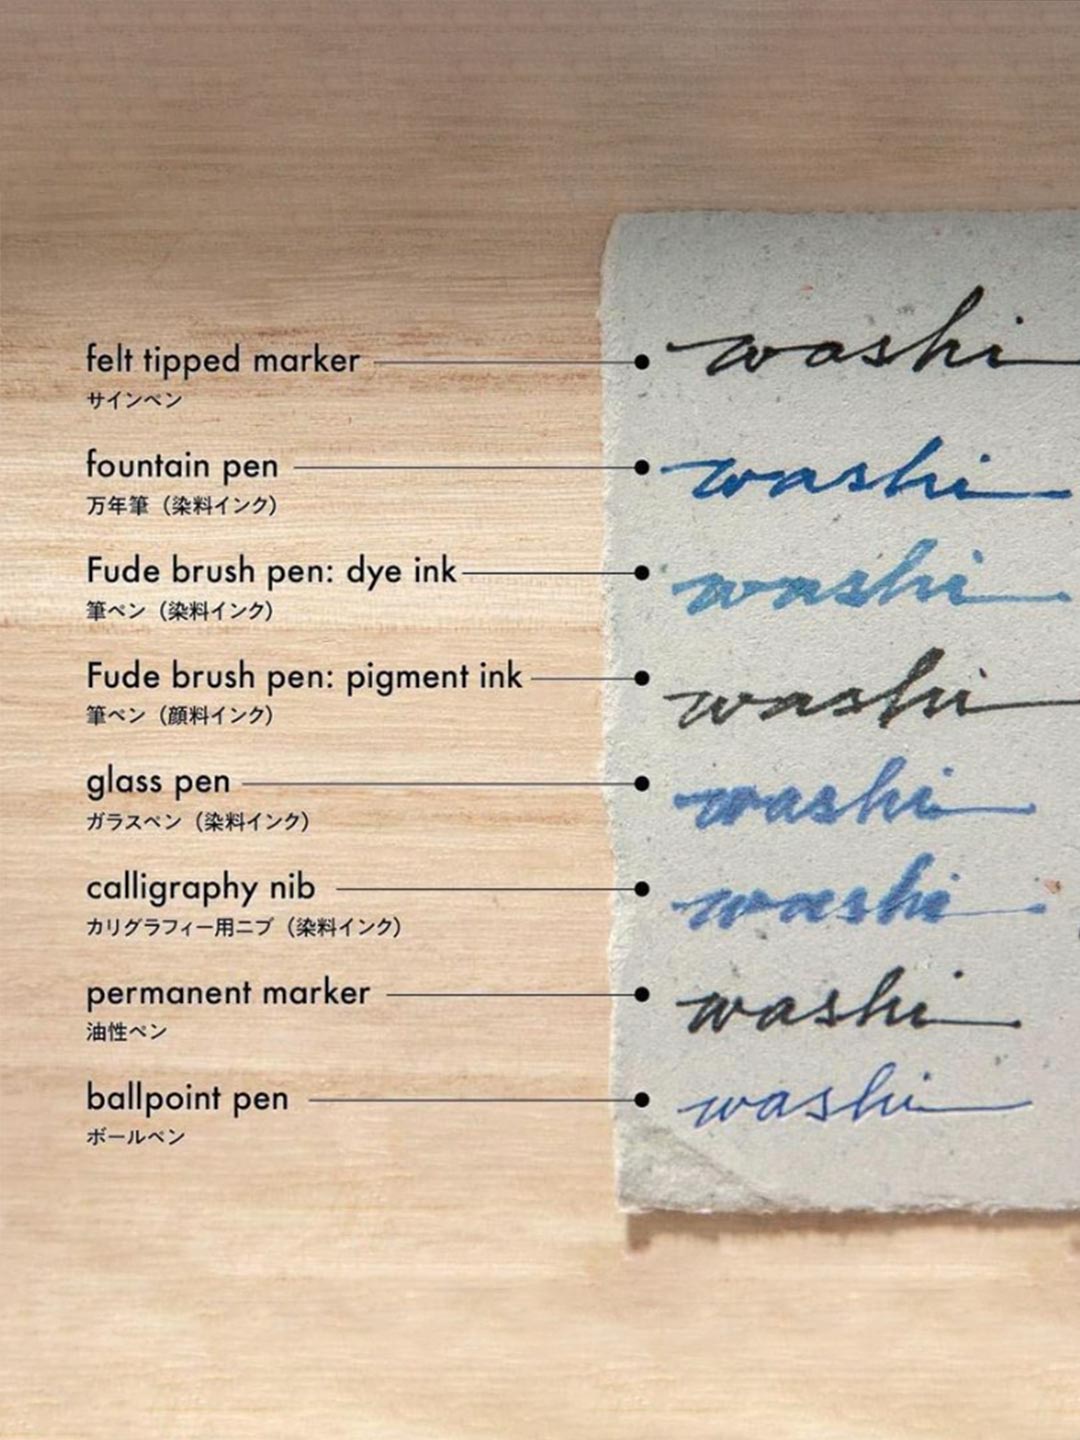 felt tipped marker
サインペン
washi
fountain pen
万年筆（染料インク）
washi
Fude brush pen: dye ink
筆ペン（染料インク）
washi
Fude brush pen: pigment ink
筆ペン（顔料インク）
washi
glass pen
ガラスペン（染料インク）
washi
calligraphy nib
カリグラフィー用ニブ（染料インク）
washi
permanent marker
油性ペン
washi
ballpoint pen
ボールペン
washi